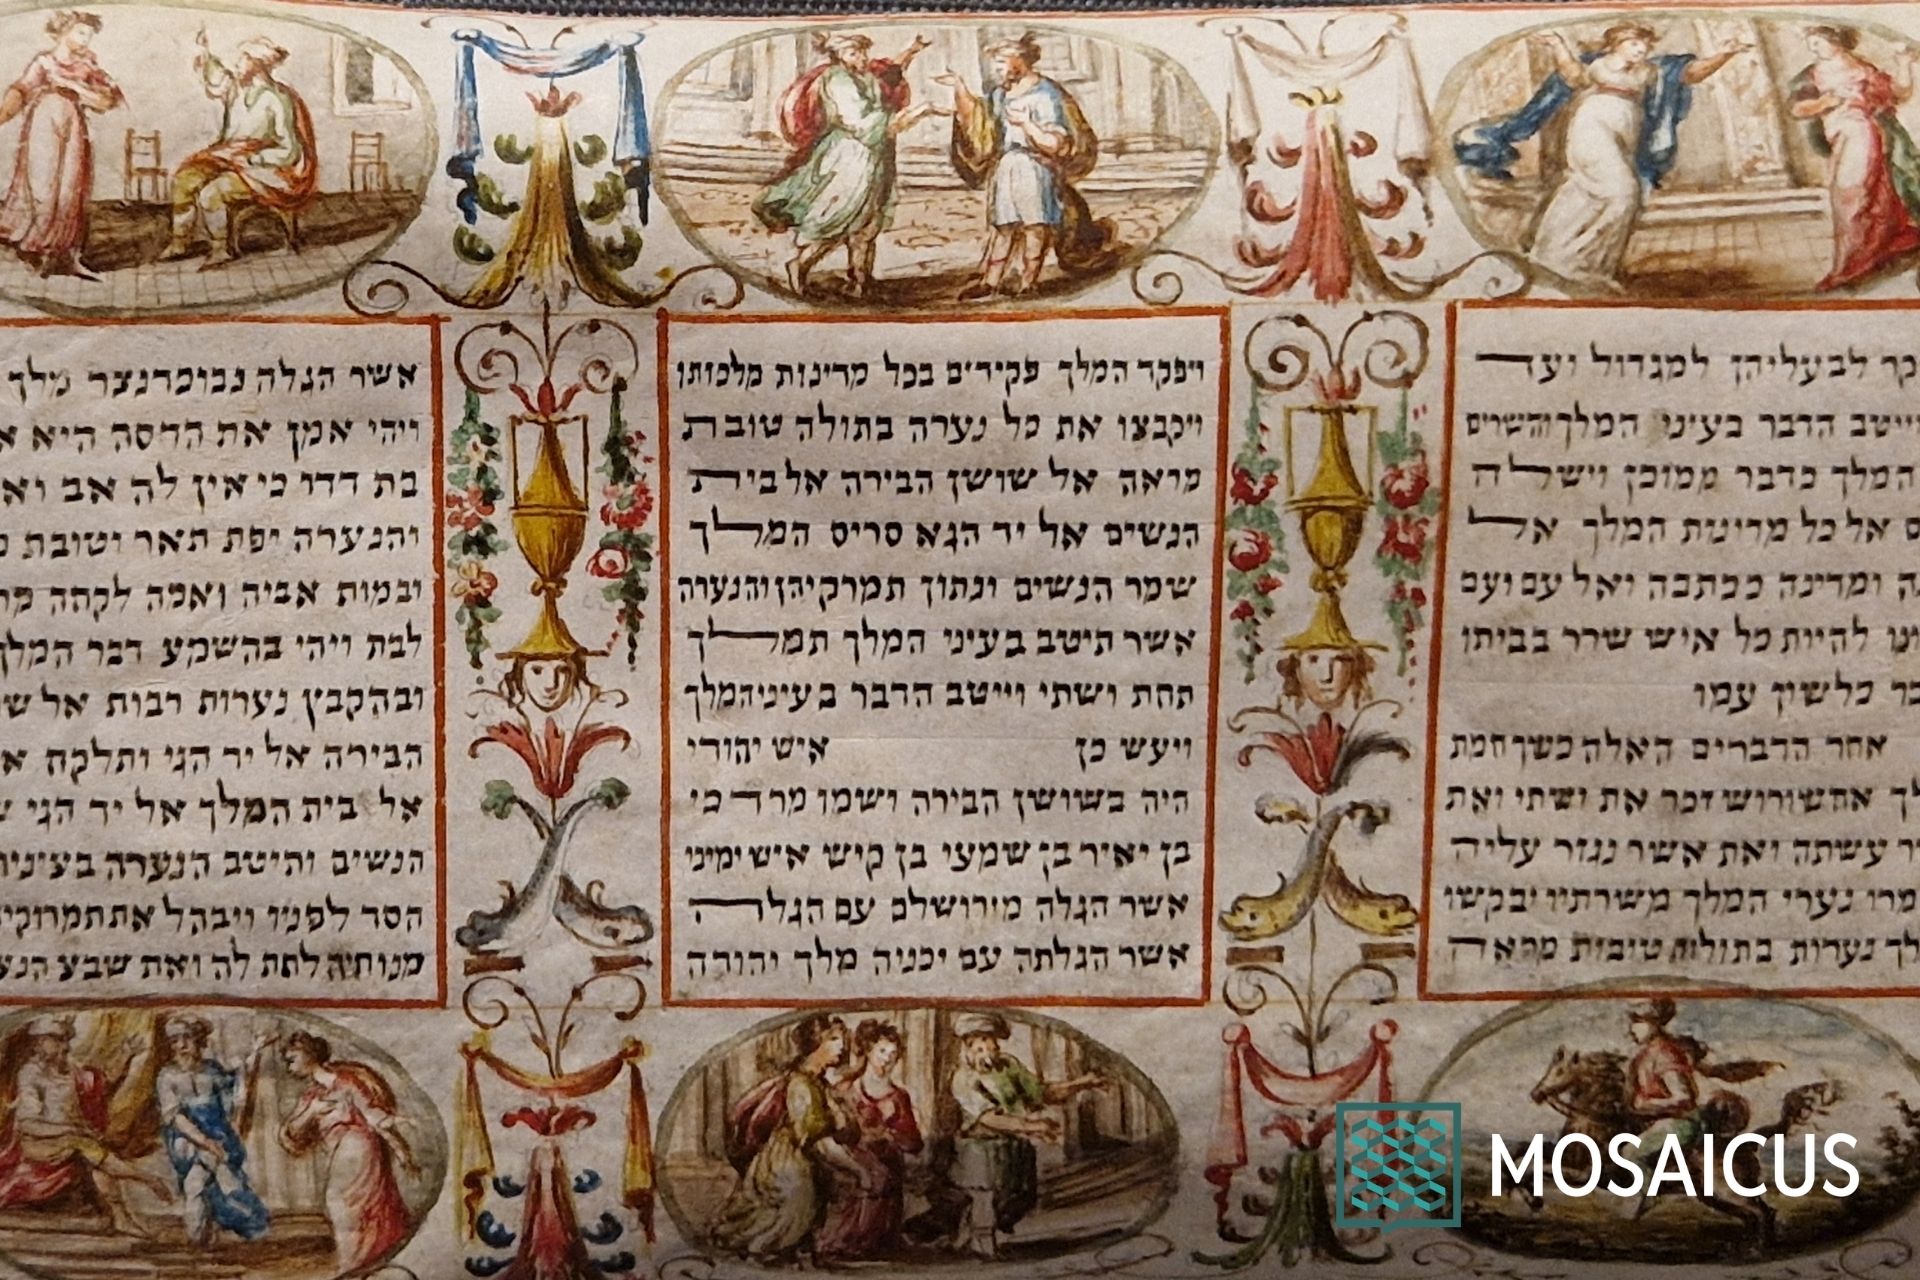 קר לבעליהן למגדול ועד
וייטב הדבר בעיני המלך והשרים
המלך כדבר ממוכן וישלח
ס אל כל מדינות המלך אל
ה ומדינה ככתבה ואל עם ועם
ונו להיות כל איש שרר בביתו
בר כלשון עמו
אחר הדברים האלה כשך חמת
לך אחשורוש זכר את ושתי ואת
ר עשתה ואת אשר נגזר עליה
מרו נערי המלך משרתיו יבקשו
לך נערות בתולות טובות מראה
ויפקד המלך פקידים בכל מדינות מלכותו
ויקבצו את כל נערה בתולה טובת
מראה אל שושן הבירה אל בית
הנשים אל יד הגא סריס המלך
שמר הנשים ונתון תמרקיהן והנערה
אשר תיטב בעיני המלך תמלך
תחת ושתי וייטב הדבר בעיני המלך
ויעש כן איש יהודי
היה בשושן הבירה ושמו מרדכי
בן יאיר בן שמעי בן קיש איש ימיני
אשר הגלה מירושלם עם הגלה
אשר הגלתה עם יכניה מלך יהודה
אשר הגלה נבוכדנצר מלך
ויהי אמן את הדסה היא א
בת דדו כי אין לה אב וא
והנערה יפת תאר וטובת מ
ובמות אביה ואמה לקחה מר
לבת ויהי בהשמע דבר המלך
ובהקבץ נערות רבות אל ש
הבירה אל יד הגי ותלקח א
אל בית המלך אל יד הגי ש
הנשים ותיטב הנערה בעיניו
חסד לפניו ויבהל את תמרוקי
מנותיה לתת לה ואת שבע הנע
MOSAICUS